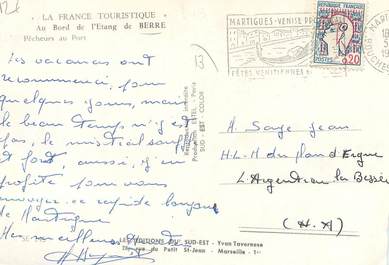 « LA FRANCE TOURISTIQUE »
Au Bord de l'Etang de BERRE
Pêcheurs au Port
Les vacances ont
recommencé, pour
quelques jours, mais
le beau temps n'y est
pas, le mistral souffle
et fort, aussi, j'en
profite pour vous
envoyer ce rapide bonjour
de Martigues
Meilleures
MARTIGUES-VENISE
FÊTES VENITIENNES
RÉPUBLIQUE FRANÇAISE
POSTES
0,20
13
SUD - EST - COLOR
LES EDITIONS DU SUD-EST - Yvan Tavernese
rue du Petit St-Jean - Marseille - 1er
Jean
H.L.M du Plan d'Ergue
L'Argentière la Bessée
(H.A)